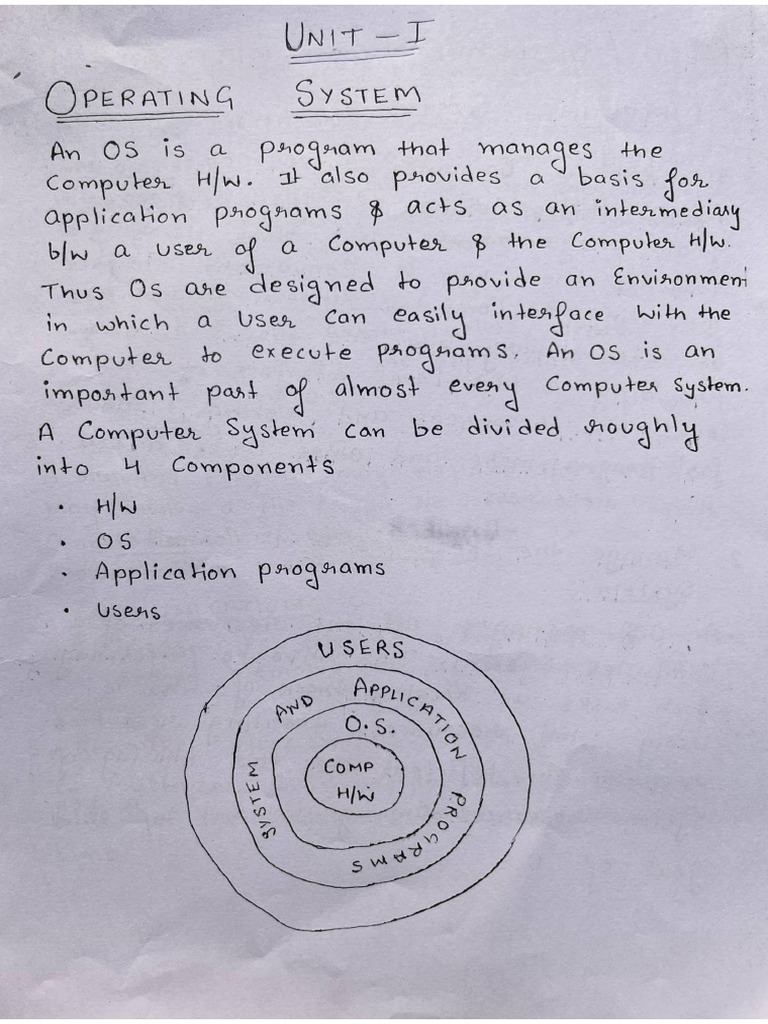 UNIT - I
OPERATING SYSTEM
An OS is a program that manages the
Computer H/W. It also provides a basis for
application programs & acts as an intermediary
b/w a user of a Computer & the Computer H/W.
Thus OS are designed to provide an Environment
in which a user can easily interface with the
Computer to execute programs. An OS is an
important part of almost every Computer System.
A Computer System can be divided roughly
into 4 Components
• H/W
• OS
• Application programs
• Users
USERS
SYSTEM AND APPLICATION PROGRAMS
O.S.
COMP
H/W